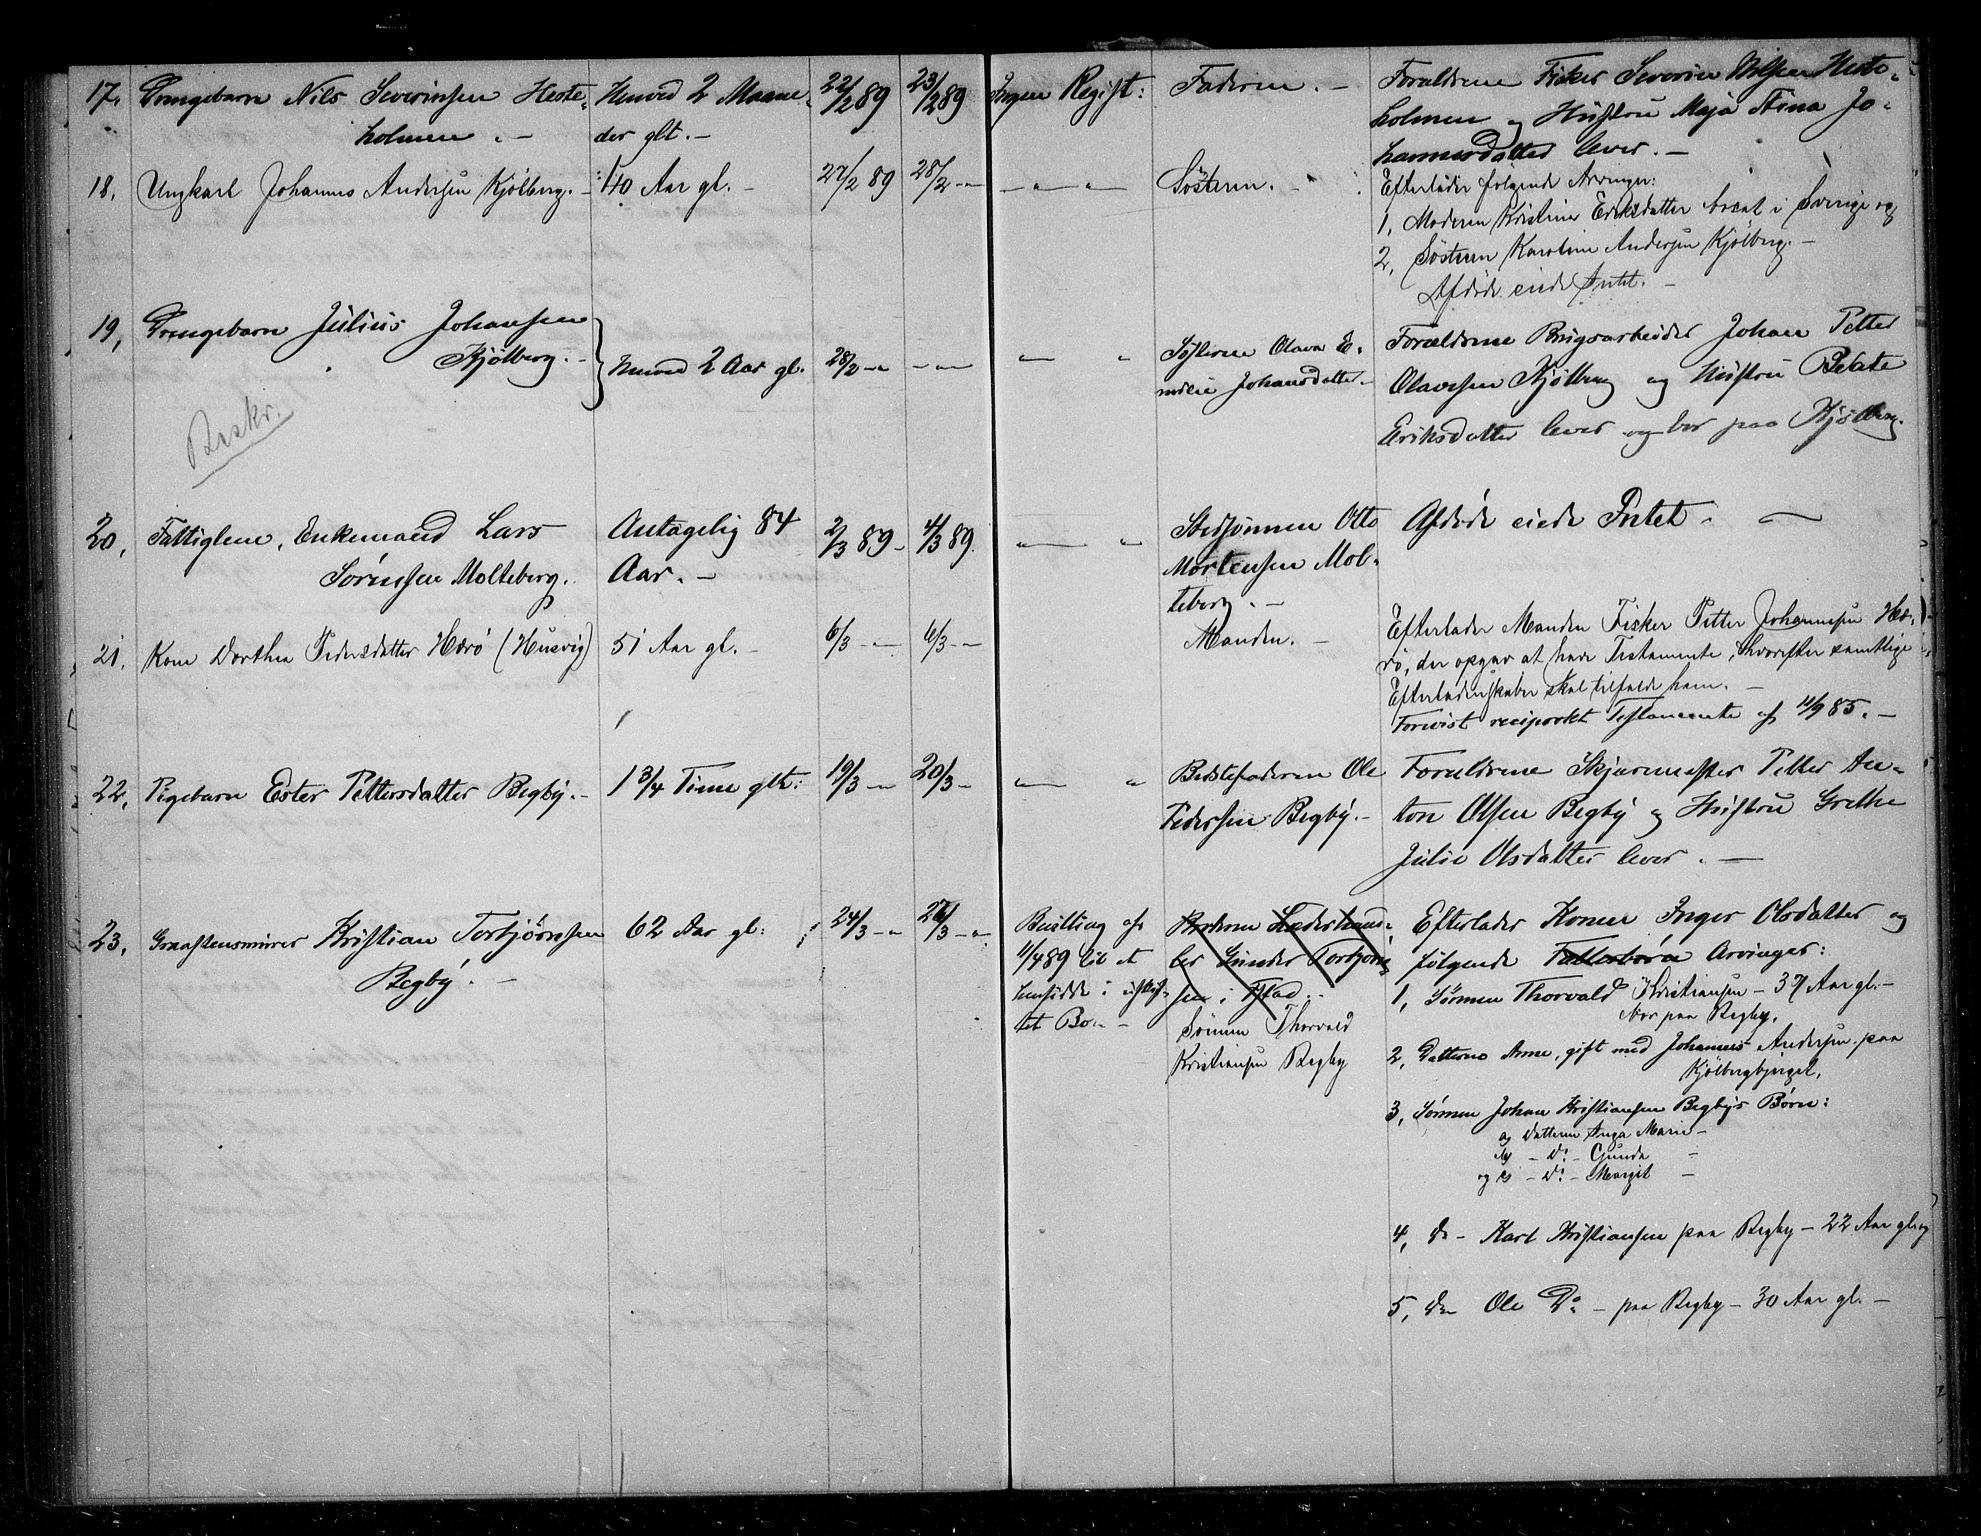 17. Drengebarn Nils Severinsen Heste-
holmen. —
Henved 2 Maane-
der glt. —
22/2 89
23/2 89
Ingen Regist:
Faderen. —
Forældrene Fisker Severin Nilsen Heste-
holmen og Hustru Maja Stina Jo-
hannesdatter lever. —
18, Ungkarl Johannes Andersen Kjølberg. —
40 Aar gl. —
27/2 89
28/2 — "
— " — "
Søsteren. —
Efterlader følgende Arvinger:
1, Moderen Kristine Eriksdatter bosat i Sverige og
2, Søsteren Karoline Andersen Kjølberg. —
Afdøde eiede Intet. —
19, Drengebarn Julius Johansen
Kjølberg. —
Henved 2 Aar gl.
28/2 — "
— " —
— " — "
Søsteren Olava E-
milie Johansdatter. —
Forældrene Brugsarbeider Johan Petter
Olavesen Kjølberg og Hustru Beate
Eriksdatter lever og bor paa Kjølberg.
Beskr.
20, Fattiglem, Enkemand Lars
Sørensen Molteberg.
Antagelig 84
Aar. —
2/3 89 —
4/3 89.
— " — "
Stedsønnen Otto
Mortensen Mol-
teberg. —
Afdøde eiede Intet. —
21. Kone Dorthea Pedersdatter Hærø (Husvig)
51 Aar gl. —
6/3 — "
6/3 — "
Manden. —
Efterlader Manden Fisker Petter Johannesen Hæ-
rø, der opgav at have Testamente, hvorefter samtlige
Efterladenskaber skal tilfalde ham. —
Forevist reciprokt Testamente af 4/9 85. —
22, Pigebarn Ester Pettersdatter Begby. —
1 3/4 Time glt:
19/3 — "
20/3 — "
— " — "
Bedstefaderen Ole
Pedersen Begby. —
Forældrene Skjærmester Petter An-
ton Olsen Begby og Hustru Grethe
Julie Olsdatter lever. —
23, Graastensmurer Kristian Torbjørnsen
Begby. —
62 Aar gl:
24/3 — "
26/3 — "
Bevilling af
11/4 89 til at
hensidde i uskif-
tet Bo. —
Broderen
Gunder Torbjørn-
sen i
Sønnen Thorvald
Kristiansen Begby
Efterlader Konen Inger Olsdatter og
følgende Fællesbørn Arvinger:
1, Sønnen Thorvald Kristiansen — 37 Aar gl. —
bor paa Begby.
2, Datteren Anne, gift med Johannes Andersen paa
Kjølbergbjerget.
3, Sønnen Johan Kristiansen Begbys Børn:
a) Datteren Inga Marie —
b) — Do — Gunda —
og c) — Do — Margit —
4, Do — Karl Kristiansen paa Begby — 22 Aar gl. og
5, Do Ole Do — paa Begby — 30 Aar gl. —